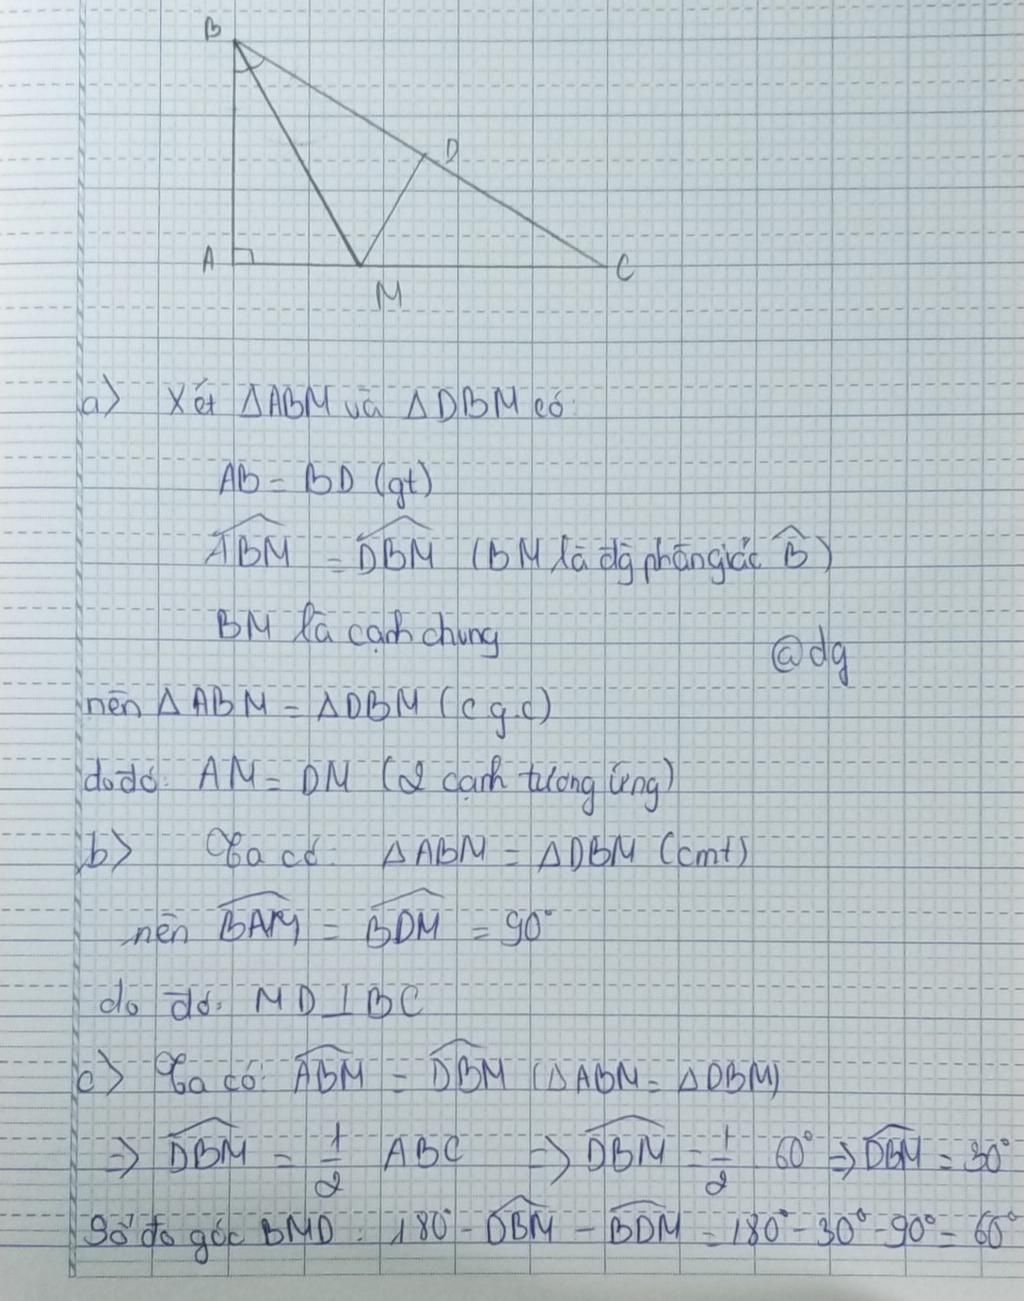 B
D
A
C
M
a) Xét ΔABM và ΔDBM có:
AB = BD (gt)
\widehat{ABM} = \widehat{DBM} (BM là đg phân giác \widehat{B})
BM là cạnh chung
@dg
nên ΔABM = ΔDBM (c.g.c)
do đó: AM = DM (2 cạnh tương ứng)
b) Ta có: ΔABM = ΔDBM (cmt)
nên \widehat{BAM} = \widehat{BDM} = 90°
do đó: MD ⊥ BC
c) Ta có: \widehat{ABM} = \widehat{DBM} (ΔABM = ΔDBM)
=> \widehat{DBM} = 1/2 ABC => \widehat{DBM} = 1/2 60° => \widehat{DBM} = 30°
Số đo góc BMD: 180° - \widehat{DBM} - \widehat{BDM} = 180° - 30° - 90° = 60°